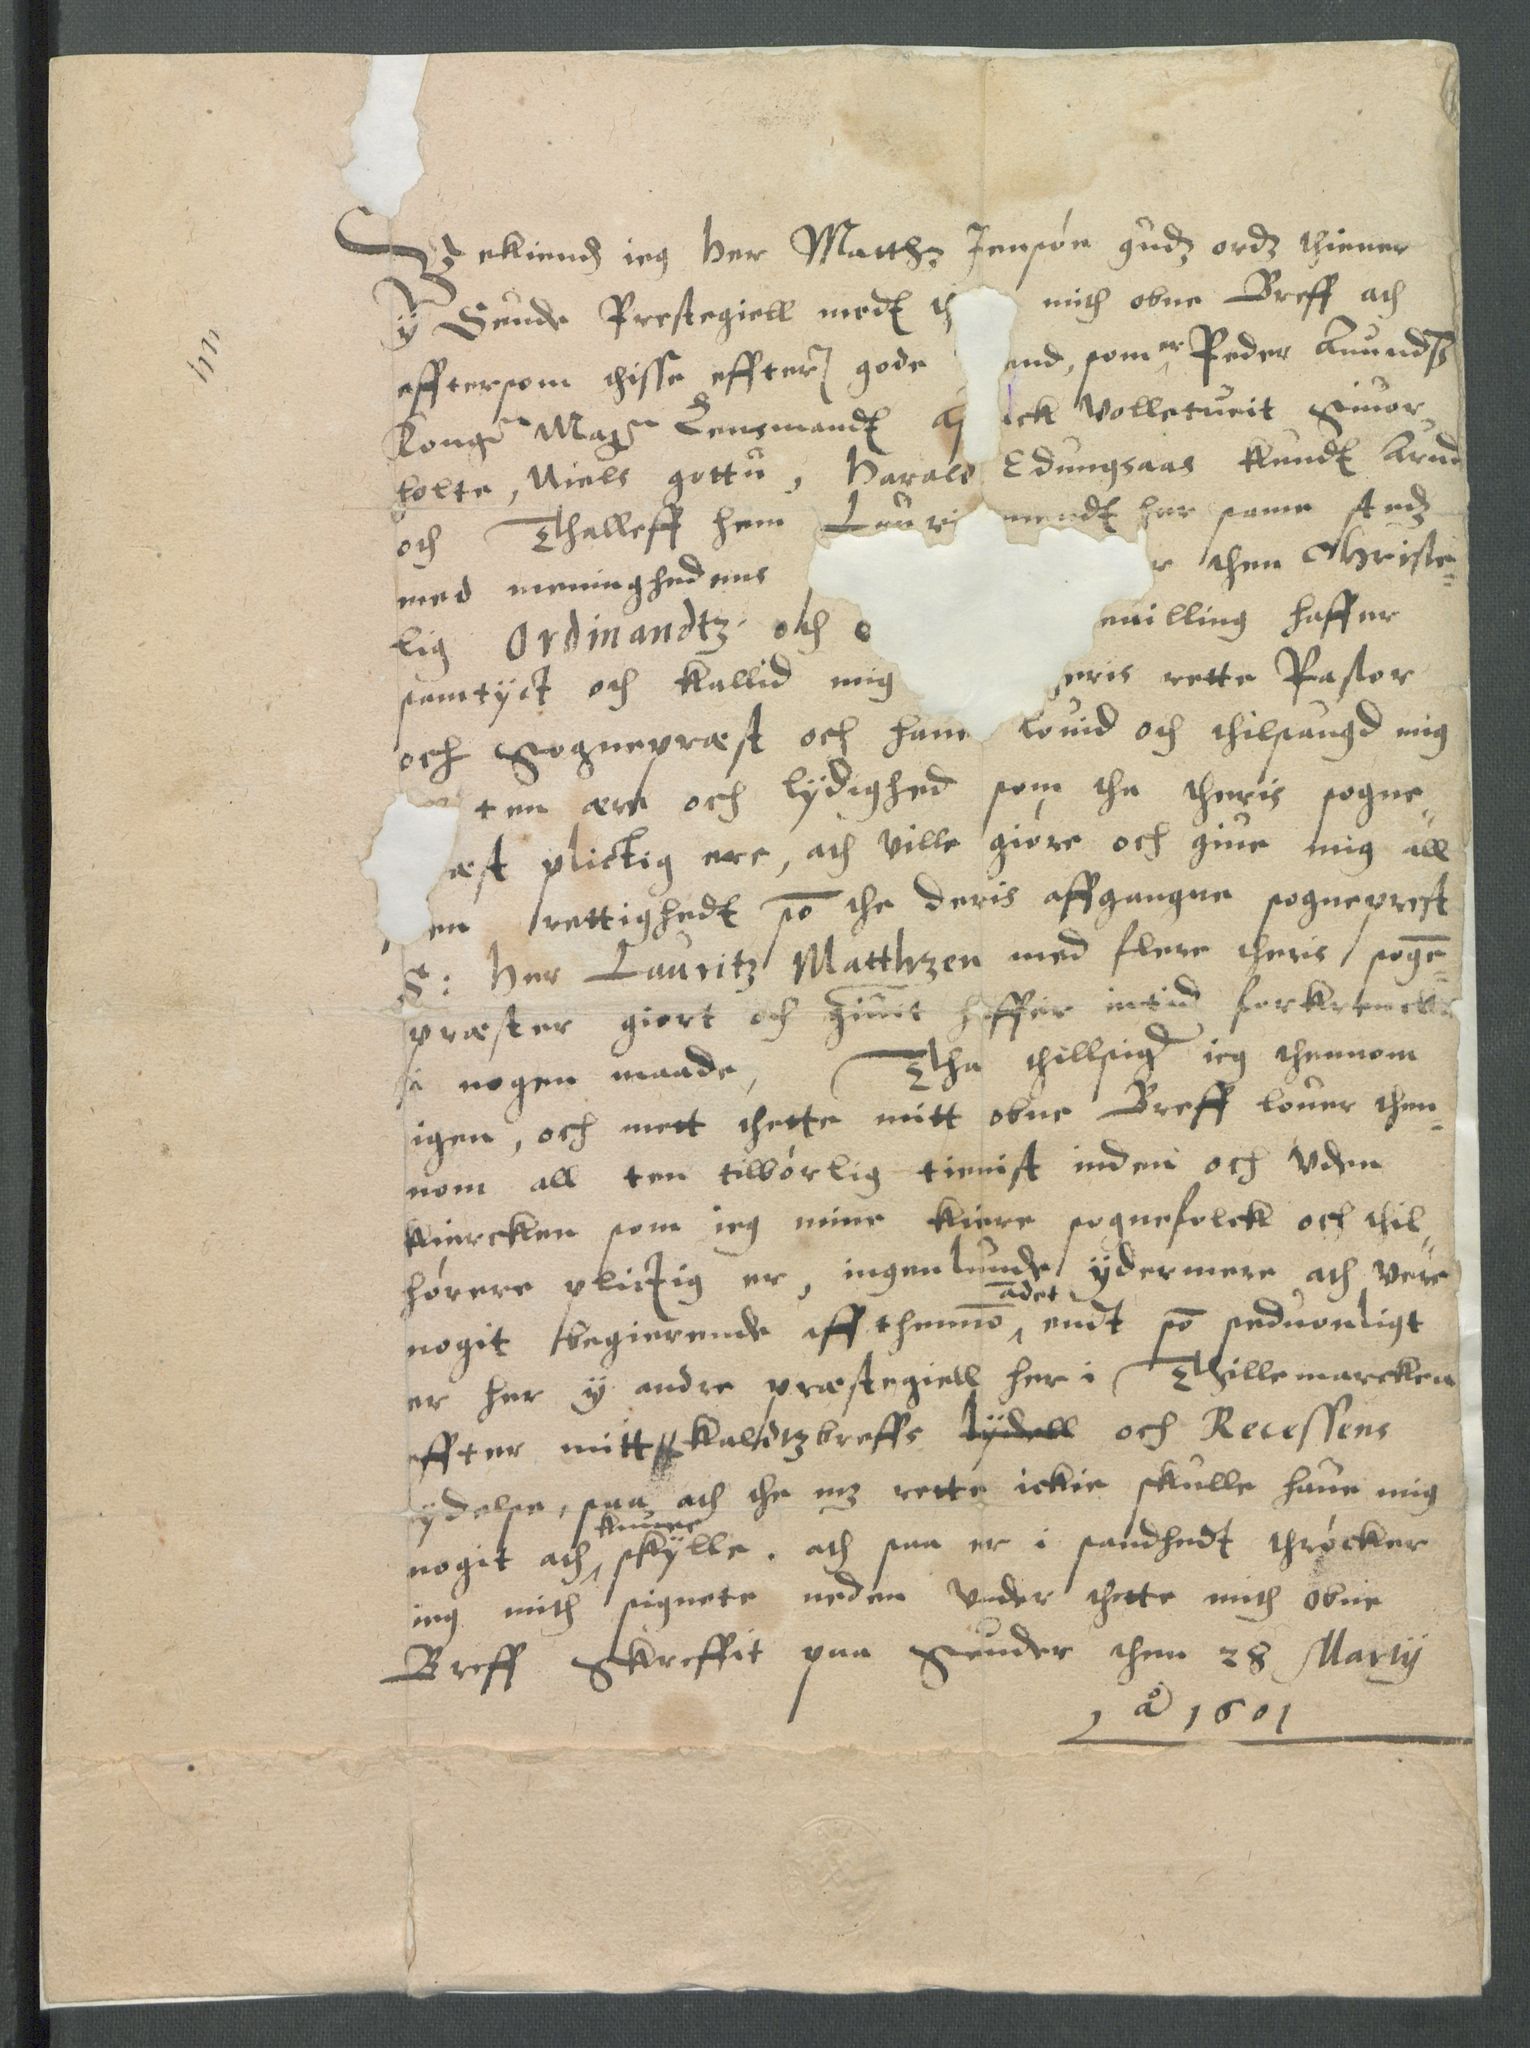 Bekiender ieg Her Matthz Jensøn gudz ordz thiener
ÿ Sende Prestegiell medt th mith obne Breff ath
effttersom thisse effter gode end, som er Peder Amunds
Kong Mag Lensmandt ick Volletueit Siuor
holte, Niels gottu, Harald Edungsaas Knudt Arnn
och Thalleff hem Lauri mendt her same stedz
med menninghedens r then Christe=
lig Ordinandtz och euilling haffuer
samtÿct och kallid mig eris rette Pastor
och Sognepræst och haue louid och thilsaugd mig
ten ære och lÿdighed som the theris sogne=
æst plictig ere, ath ville giøre och giue mig all
en rettighedt som the deris affgangne sogneprest
S: Her Lauritz Matthzen med flere theris sogne=
præster giort och giuit haffuer intid forkrencke
i nogen maade, Tha thillsiger ieg thennom
igen, och mett thette mitt obne Breff louer then=
nom all ten tilbørlig tienist inden och vden
kiercken som ieg mine kiere sognefolck och thil=
hørere plictig er, ingenlunde ÿdermere ath vere
nogit begierende aff thennom adet endt som seduonligt
er her ÿ andre præstegiell her i Thillemarcken
effter mitt kaldtzbreffs lÿdell och Recessens
ÿdelse, saa ath the mz rette ickie skulle haue mig
nogit ath kunne skÿlle. ath saa er i sandhedt thrøcker
ieg mith signete neden vnder thette mith obne
Breff Skreffit paa Sender then 28 Martij
ao 1601